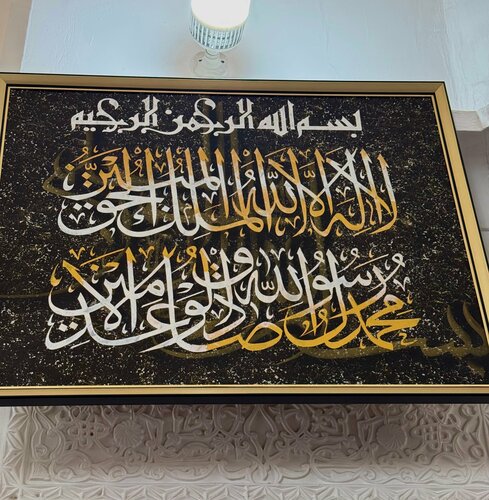 بسم الله الرحمن الرحيم
لا إله إلا الله الملك الحق المبين
محمد رسول الله صادق الوعد الأمين